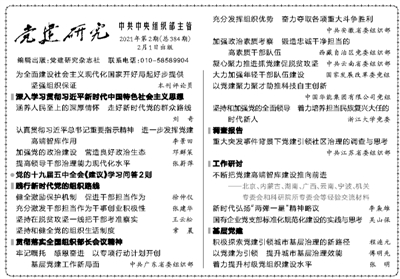 党建研究
中共中央组织部主管
2021年第2期(总384期)
2月1日出版
编辑出版:党建研究杂志社 联系电话:010-58589904
为全面建设社会主义现代化国家开好局起好步提供
坚强组织保证 本刊评论员
深入学习贯彻习近平新时代中国特色社会主义思想
涵养人民至上的深厚情怀 走好新时代党的群众路线
刘奇
认真贯彻习近平总书记重要指示精神 进一步发挥党建
高端智库作用 李景田
加强党的政治建设 营造良好政治生态
提高领导干部治理能力现代化水平 张蔚萍
党的十九届五中全会《建议》学习问答2则
践行新时代党的组织路线
健全激励保护机制 促进干部担当作为 徐仲仪
充分激发干部担当作为干事创业积极性 张建华
坚持在脱贫攻坚一线把干部考准察实 王云松
坚持和健全党的组织生活制度
贯彻落实全国组织部长会议精神
牢记嘱托 感恩奋进 以专项行动计划开创
基层党建工作新局面 中共广东省委组织部
充分发挥组织优势 奋力夺取各项重大斗争胜利
中共安徽省委组织部
加强政治素质考察 锻造忠诚干净担当的
高素质干部队伍 西藏自治区党委组织部
凝心聚力推进抓党建促巩固脱贫 中共云南省委组织部
大力加强年轻干部队伍建设 国家发展改革委党组
以党建聚力聚才助推科技自主创新
中国华能集团有限公司党组
坚持和加强党的全面领导 着力培养担当民族复兴大任的
时代新人 浙江大学党委
调查报告
重大突发事件背景下党建引领社区治理的调查与思考
中共江苏省委组织部
工作研讨
不断把党建高端智库建设推向前进
——北京、内蒙古、湖南、广西、云南、宁波、机关
专委会和科研院所专委会等经验交流材料
新时代弘扬"两弹一星"精神断议 李燕雄
国有企业党支部标准化规范化建设的实践与思考 吴山保
基层党建
积极探索党建引领城市基层治理的新路径 程迪光
以党建为引领 提升城市基层治理效能 傅明先
着力提升村级党组织建设水平 张明